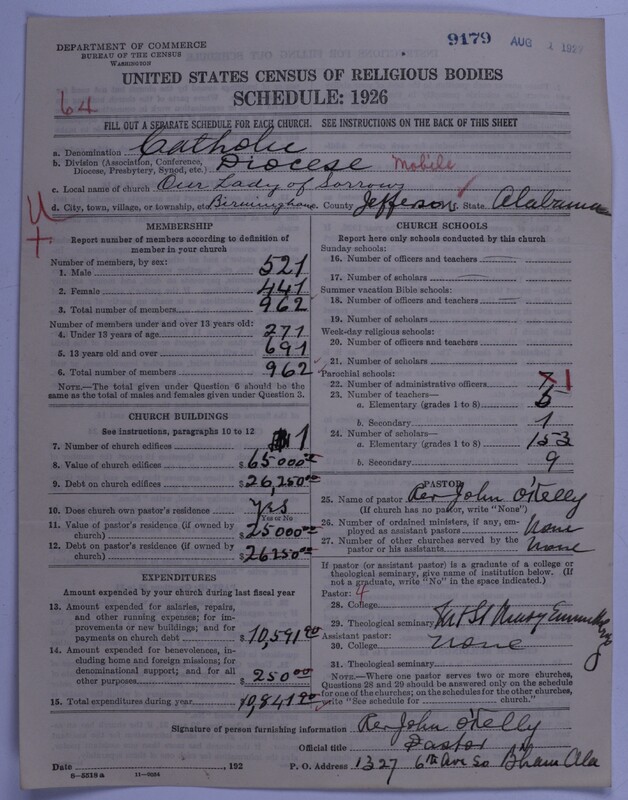 DEPARTMENT OF COMMERCE
BUREAU OF THE CENSUS
WASHINGTON
9179 AUG 1927
UNITED STATES CENSUS OF RELIGIOUS BODIES
SCHEDULE: 1926
64
FILL OUT A SEPARATE SCHEDULE FOR EACH CHURCH. SEE INSTRUCTIONS ON THE BACK OF THIS SHEET
a. Denomination Catholic
b. Division (Association, Conference, Diocese, Presbytery, Synod, etc.) Diocese Mobile
c. Local name of church Our Lady of Sorrows
d. City, town, village, or township, etc. Birmingham e. County Jefferson f. State Alabama
U
+
MEMBERSHIP
Report number of members according to definition of
member in your church
Number of members, by sex:
1. Male 521
2. Female 441
3. Total number of members 962
Number of members under and over 13 years old:
4. Under 13 years of age 271
5. 13 years old and over 691
6. Total number of members 962
NOTE.—The total given under Question 6 should be the
same as the total of males and females given under Question 3.
CHURCH BUILDINGS
See instructions, paragraphs 10 to 12
7. Number of church edifices 1
8. Value of church edifices $65000.00
9. Debt on church edifices $26,250.00
10. Does church own pastor's residence yes
Yes or No
11. Value of pastor's residence (if owned by
church) $25000.00
12. Debt on pastor's residence (if owned by
church) $26250.00
EXPENDITURES
Amount expended by your church during last fiscal year
13. Amount expended for salaries, repairs,
and other running expenses; for im-
provements or new buildings; and for
payments on church debt $10,591.90
14. Amount expended for benevolences, in-
cluding home and foreign missions; for
denominational support; and for all
other purposes $250.00
15. Total expenditures during year 10,841.90
CHURCH SCHOOLS
Report here only schools conducted by this church
Sunday schools:
16. Number of officers and teachers
17. Number of scholars
Summer vacation Bible schools:
18. Number of officers and teachers
19. Number of scholars
Week-day religious schools:
20. Number of officers and teachers
21. Number of scholars
Parochial schools:
22. Number of administrative officers 1
23. Number of teachers—
a. Elementary (grades 1 to 8) 5
b. Secondary 1
24. Number of scholars—
a. Elementary (grades 1 to 8) 153
b. Secondary 9
PASTOR
25. Name of pastor Rev John O'Kelly
(If church has no pastor, write "None")
26. Number of ordained ministers, if any, em-
ployed as assistant pastors None
27. Number of other churches served by the
pastor or his assistants None
If pastor (or assistant pastor) is a graduate of a college or
theological seminary, give name of institution below. (If
not a graduate, write "No" in the space indicated.)
Pastor: 4
28. College
29. Theological seminary Mt St Mary
Assistant pastor:
30. College none
31. Theological seminary
NOTE.—Where one pastor serves two or more churches,
Questions 28 and 29 should be answered only on the schedule
for one of the churches; on the schedules for the other churches,
write "See schedule for church."
Signature of person furnishing information Rev John O'Kelly
Official title Pastor
Date , 192 P. O. Address 1327 6th Ave So Bham Ala
8—5518 a 11—9284